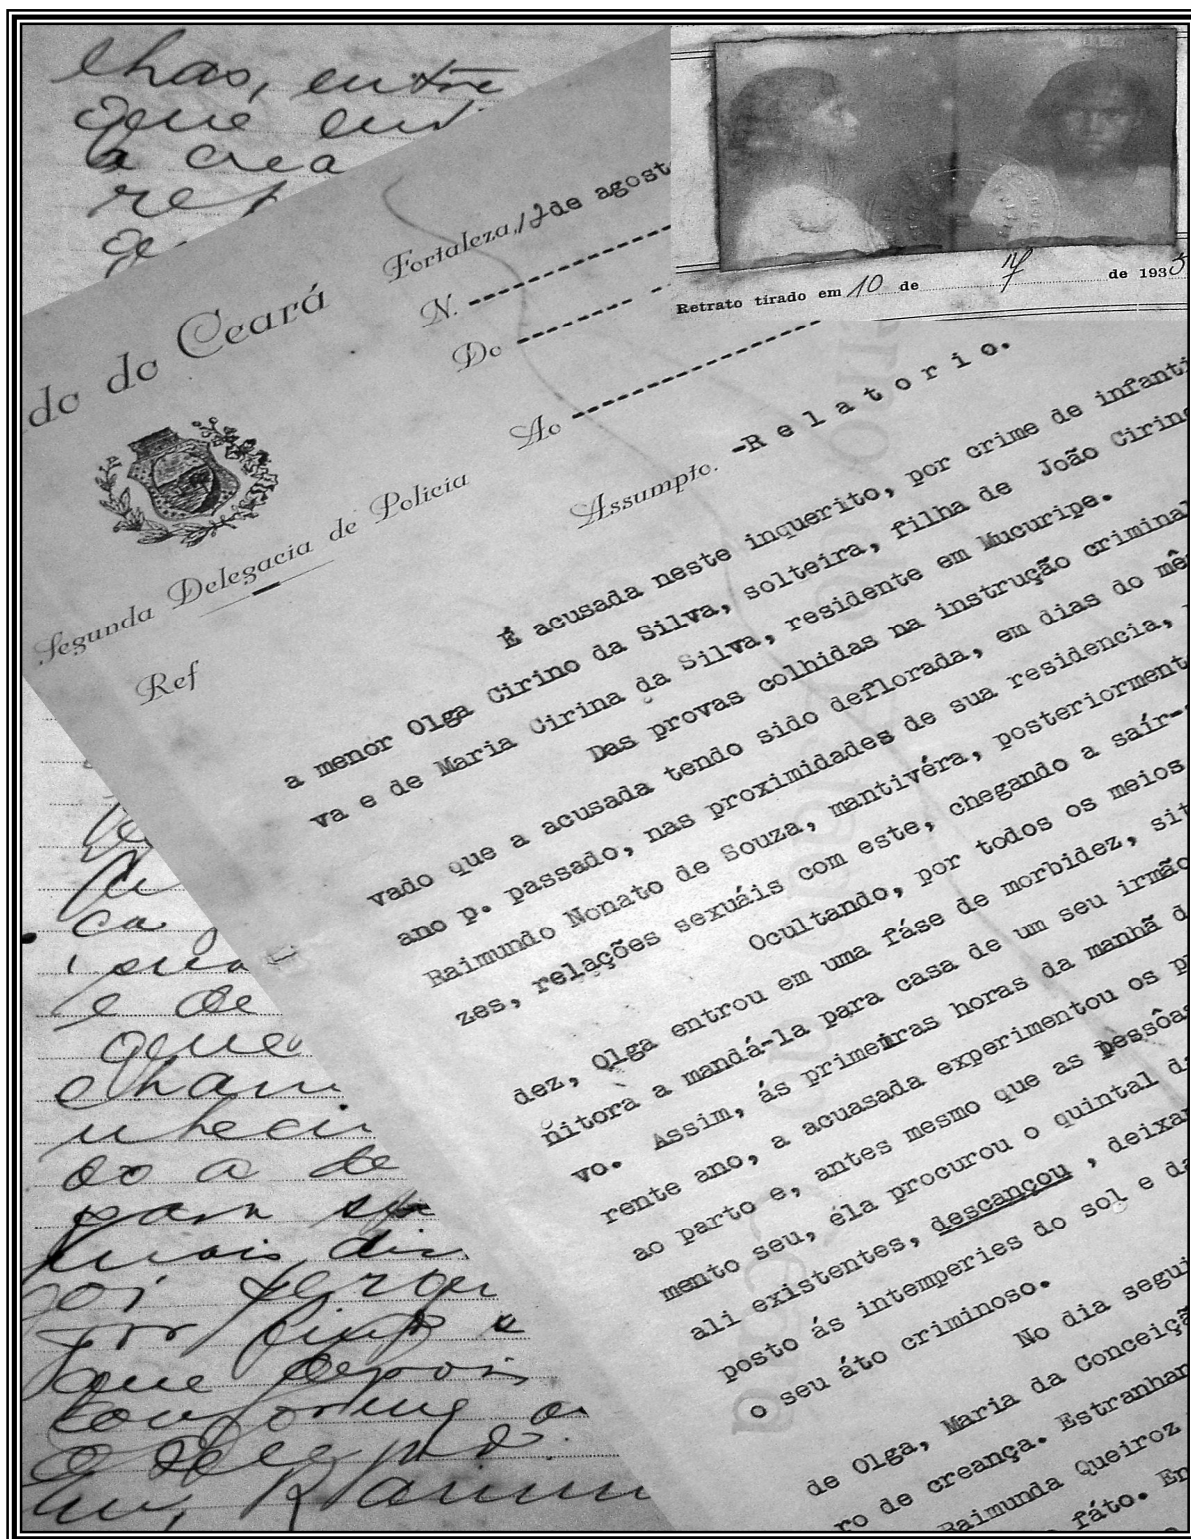 lhas, entre
que
a crea
Retrato tirado em 10 de de 193
do do Ceará
Segunda Delegacia de Policia
Ref
Fortaleza, 12 de agost
N.
Do
Ao
Assumpto. -Relatorio.
É acusada neste inquerito, por crime de infanti
a menor Olga Cirino da Silva, solteira, filha de João Cirino
va e de Maria Cirina da Silva, residente em Mucuripe.
Das provas colhidas na instrução criminal
vado que a acusada tendo sido deflorada, em dias do mê
ano p. passado, nas proximidades de sua residencia,
Raimundo Nonato de Souza, mantivéra, posteriorment
zes, relações sexuáis com este, chegando a saír-
Ocultando, por todos os meios
dez, Olga entrou em uma fáse de morbidez, sit
nitora a mandá-la para casa de um seu irmão
vo. Assim, ás primeiras horas da manhã d
rente ano, a acuasada experimentou os p
ao parto e, antes mesmo que as pessôas
mento seu, éla procurou o quintal da
ali existentes, descançou , deixan
posto ás intemperies do sol e da
o seu áto criminoso.
No dia segui
de Olga, Maria da Conceiçã
ro de creança. Estranhan
Raimunda Queiroz
fáto. En
ca
e de
que
do a de
para
mais
por
que depois
conforme